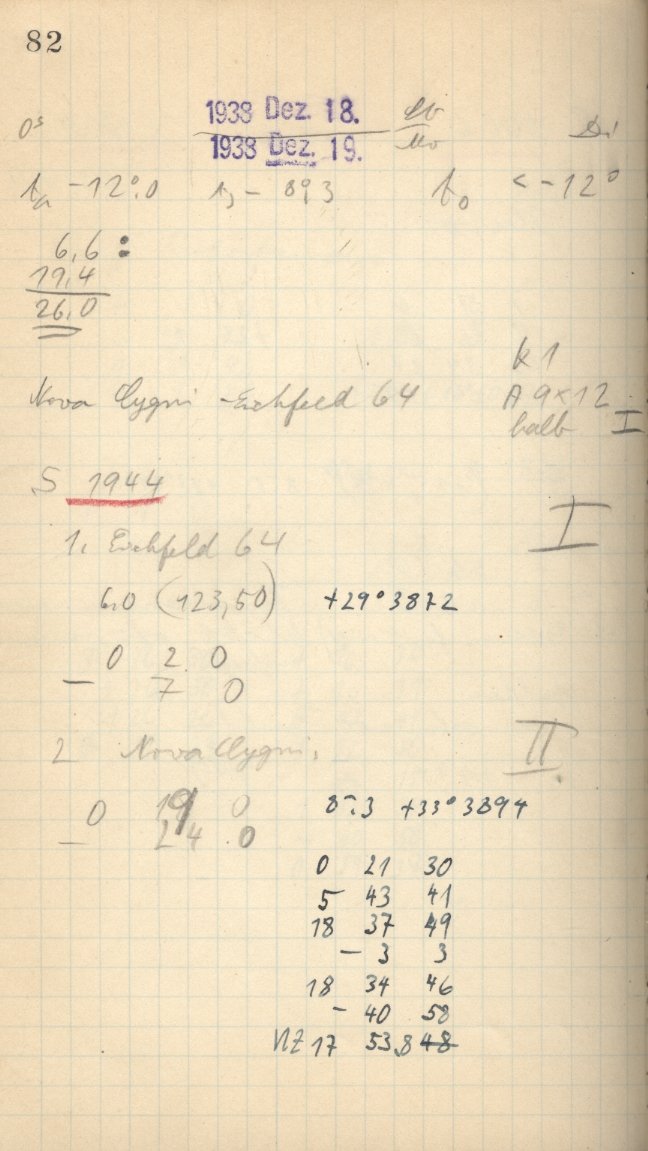 82
1938 Dez. 18.
0ˢ
1938 Dez. 19.
-12°,0 - 893 < -12°
6,6 :
19,4
26,0
k 1
Nova Cygni - Eichfeld 64 A 9x12
halb I
S 1944
1. Eichfeld 64 I
6,0 (123,50) +29°3872
0 2 0
- 7 0
2 Nova Cygni. II
0 19 0 8.3 +33°3894
- 24 0
0 21 30
5 43 41
18 37 49
- 3 3
18 34 46
- 40 58
NZ 17 53,8 48